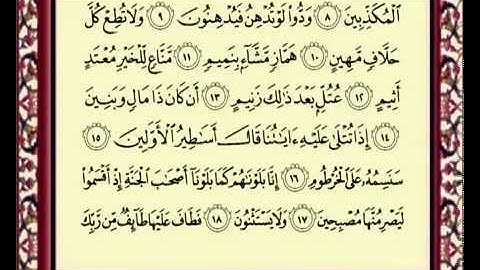 ٱلْمُكَذِّبِينَ ۝٨ وَدُّوا۟ لَوْ تُدْهِنُ فَيُدْهِنُونَ ۝٩ وَلَا تُطِعْ كُلَّ
حَلَّافٍ مَّهِينٍ ۝١٠ هَمَّازٍ مَّشَّآءٍۭ بِنَمِيمٍ ۝١١ مَّنَّاعٍ لِّلْخَيْرِ مُعْتَدٍ
أَثِيمٍ ۝١٢ عُتُلٍّۭ بَعْدَ ذَٰلِكَ زَنِيمٍ ۝١٣ أَن كَانَ ذَا مَالٍ وَبَنِينَ
۝١٤ إِذَا تُتْلَىٰ عَلَيْهِ ءَايَٰتُنَا قَالَ أَسَٰطِيرُ ٱلْأَوَّلِينَ ۝١٥
سَنَسِمُهُۥ عَلَى ٱلْخُرْطُومِ ۝١٦ إِنَّا بَلَوْنَٰهُمْ كَمَا بَلَوْنَآ أَصْحَٰبَ ٱلْجَنَّةِ إِذْ أَقْسَمُوا۟
لَيَصْرِمُنَّهَا مُصْبِحِينَ ۝١٧ وَلَا يَسْتَثْنُونَ ۝١٨ فَطَافَ عَلَيْهَا طَآئِفٌ مِّن رَّبِّكَ